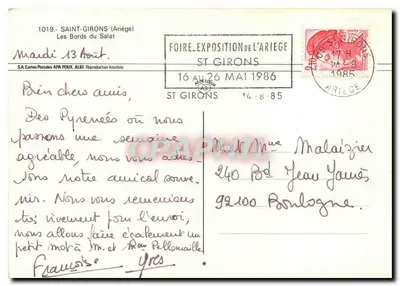 1019.- SAINT-GIRONS (Ariège)
Les Bords du Salat
Mardi 13 Août.
S.A. Cartes Postales APA POUX. ALBI Reproduction Interdite
Bien chers amis,
Des Pyrenées où nous
passons une semaine
agréable, nous vous adres-
sons notre amical souve-
nir. Nous vous remercions
très vivement pour l'envoi,
nous allons faire également un
petit mot à M. et Mme Pellomaille
Françoise Yves
FOIRE.EXPOSITION DE L'ARIEGE
ST GIRONS
16 AU 26 MAI 1986
ST GIRONS 14-8-85
2,10
ST GIRONS
17 H
14-8
1985
ARIEGE
M et Mme Malaizier
240 Bd Jean Jaurès
92100 Boulogne.